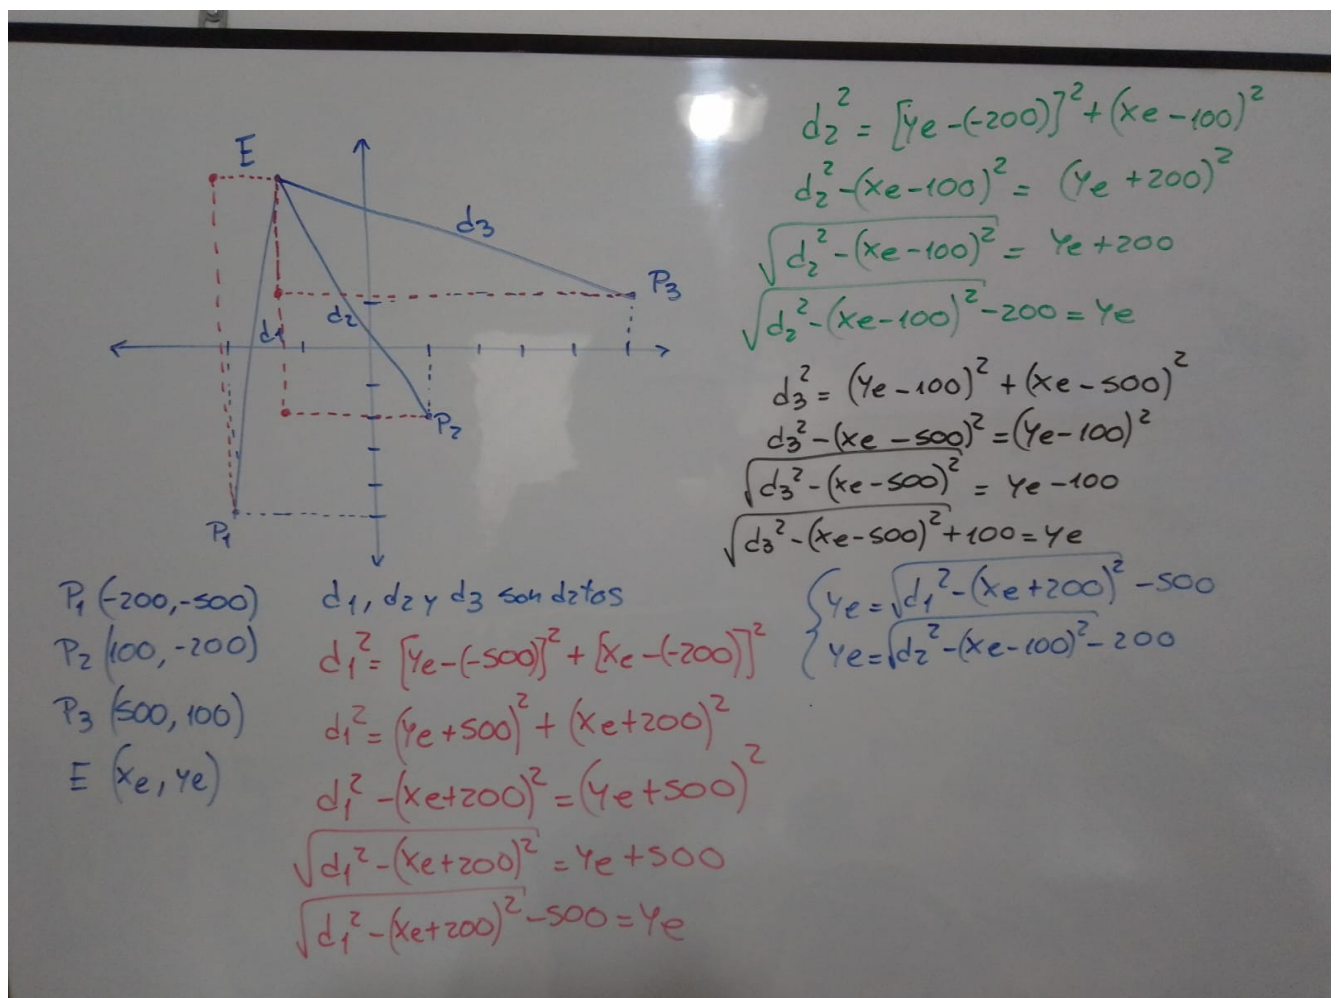 E
d3
P3
d1
d2
P2
P1
P1 (-200,-500)
P2 (100, -200)
P3 (500, 100)
E (xe, ye)
d1, d2 y d3 son datos
d1² = [ye-(-500)]² + [xe-(-200)]²
d1² = (ye+500)² + (xe+200)²
d1² -(xe+200)² = (ye+500)²
√d1² -(xe+200)² = ye+500
√d1² -(xe+200)² -500 = ye
d2² = [ye-(-200)]² + (xe-100)²
d2² -(xe-100)² = (ye +200)²
√d2² -(xe-100)² = ye+200
√d2² -(xe-100)² -200 = ye
d3² = (ye-100)² + (xe-500)²
d3² -(xe -500)² = (ye-100)²
√d3² -(xe-500)² = ye-100
√d3² -(xe-500)² +100 = ye
{ ye = √d1² -(xe+200)² -500
ye = √d2² -(xe-100)² -200